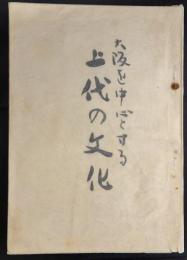 大阪を中心とする
上代の文化